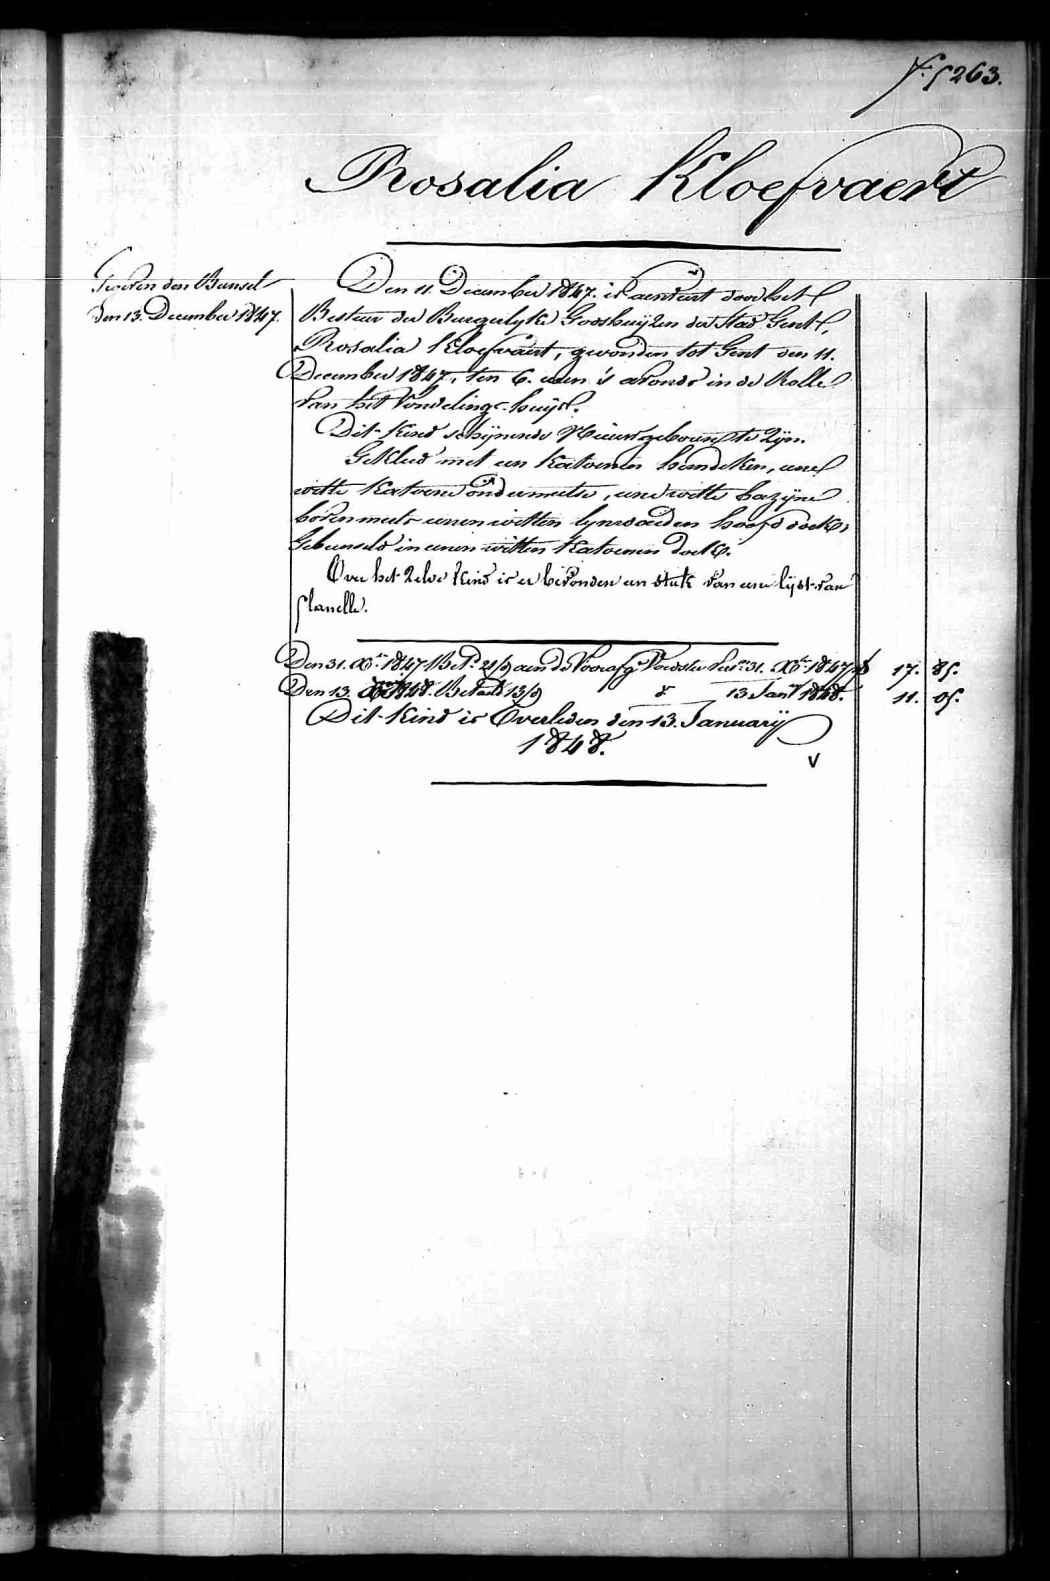 f.° 263.
Rosalia Kloefvaert
Geven den Bunsel
den 13. December 1847.
Den 11. December 1847. is aenveirt door het
Bestuur der Burgerlyke Godshuyzen der Stad Gent,
Rosalia Kloefvaert, gevonden tot Gent den 11.
December 1847, ten 6. uren 's avonds in de Rolle
van het Vondelingc-huys.
Dit-kind schynende Nieuwgeboren te Zyn.
Gekleed met een katoenen hemdeken, eene
witte katoene ondermutse, eene witte bazyne
bovenmuts eenen witten lynwaeden hoofddoek,
Gebunseld in eenen witten katoenen doek.
Over het zelve kind is er bevonden een stuk van eene lyst van
flanelle.
Den 31. Xbr 1847 Bet.d 21/9 aen de Voorafg. Voedster 31. Xbr 1847 17. 85.
Den 13. 1848. Betaeld 13/9 13 Jan.y 1848. 11. 05.
Dit-kind is Overleden den 13. January
1848.
V